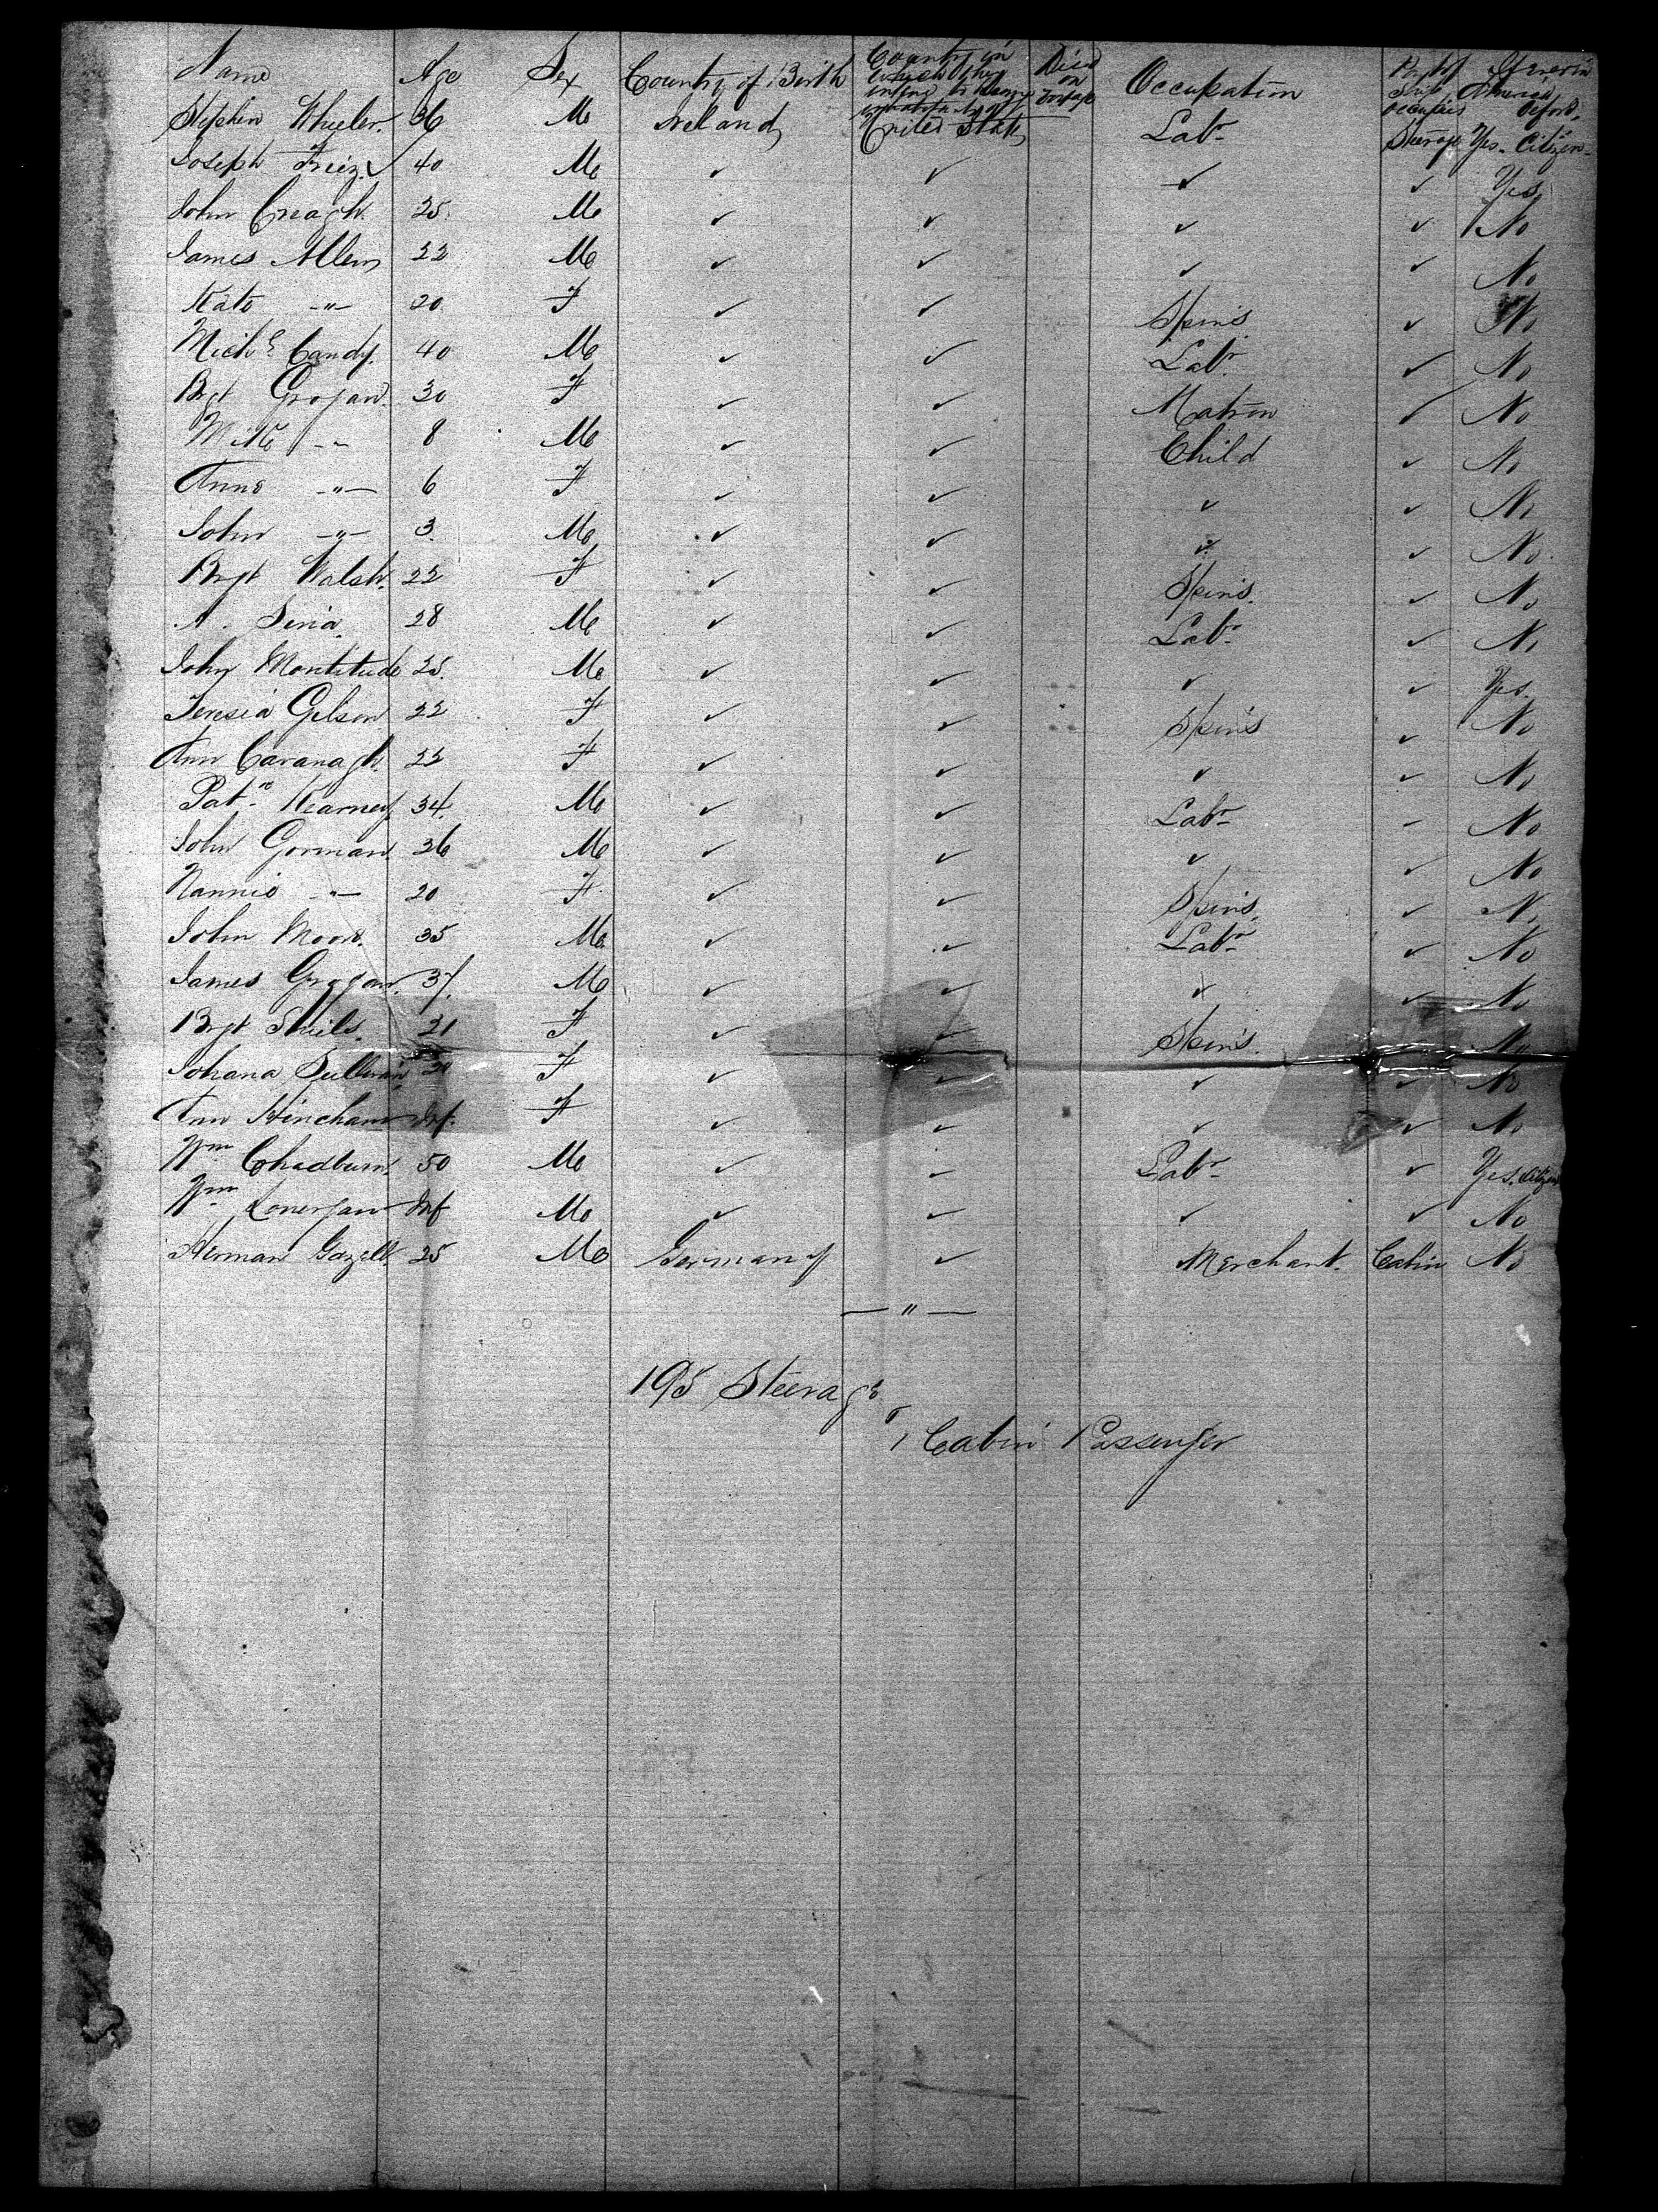 Name Age Sex Country of Birth Country in which they intend to become inhabitants of Died on Voyage Occupation Part of Ship Occupied If ever in America before
Stephen Wheeler. 36 M Ireland United States Labr Steerage Yes. Citizen
Joseph 40 M ✓ ✓ ✓ ✓ Yes
John Creagh. 25. M ✓ ✓ ✓ ✓ No
James Allen 22 M ✓ ✓ ✓ ✓ No
Kate -"- 20 F ✓ ✓ Spins. ✓ No
Michl Candy. 40 M ✓ ✓ Labr ✓ No
Bgt Grogan. 30 F ✓ ✓ Matron ✓ No
-"- 8 M ✓ ✓ Child ✓ No
Anne -"- 6 F ✓ ✓ ✓ ✓ No
John -"- 3. M ✓ ✓ ✓ ✓ No.
Bgt Walsh. 22 F ✓ ✓ Spins. ✓ No
28 M ✓ ✓ Labr ✓ No
John 25. M ✓ ✓ ✓ ✓ Yes.
Teresia Gelson 22 F ✓ ✓ Spins ✓ No
Ann Cavanagh. 22 F ✓ ✓ ✓ ✓ No
Patk Kearney 34. M ✓ ✓ Labr - No
John Gorman. 36 M ✓ ✓ ✓ ✓ No
Nannie -"- 20 F. ✓ ✓ Spins. ✓ No
John Moore. 35 M ✓ ✓ Labr ✓ No
James Grogan. 37. M ✓ ✓ ✓ ✓ No
Bgt Shiels. 21 F ✓ ✓ Spins. No
Johana Sullivan 20 F ✓ ✓ ✓ ✓ No
Ann Hinchan Inf. F ✓ ✓ ✓ ✓ No
Wm Chadburn. 50 M ✓ ✓ Labr ✓ Yes. Citizen
Wm Lonergan Inf M ✓ ✓ ✓ ✓ No
Herman Gazell. 25 M Germany ✓ Merchant. Cabin No
—"—
195 Steerage
1 Cabin Passenger